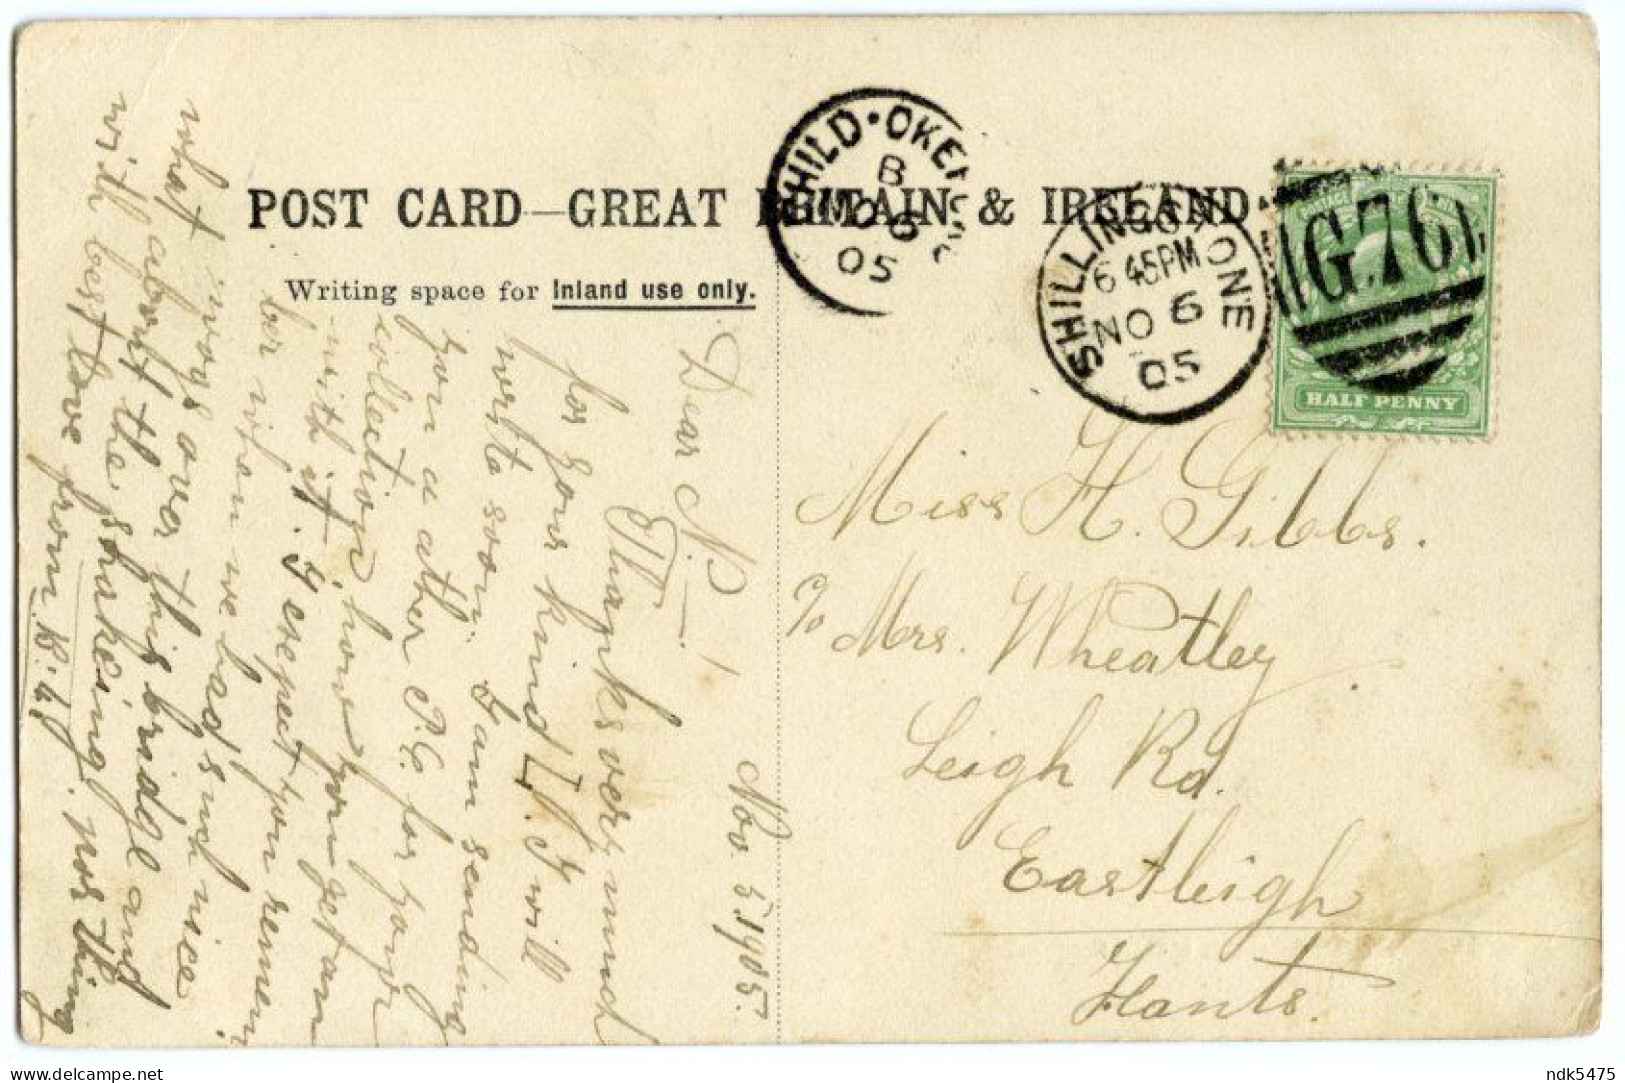 POST CARD—GREAT BRITAIN & IRELAND
Writing space for Inland use only.
CHILD·OKEFO
B
NO 6
05
SHILLINGSTONE
6 45PM
NO 6
05
G.76
HALF PENNY
Nov. 5. 1905.
Dear N.—
Thanks very much
for your kind I will
write soon. I am sending
you a ather P.C. for your
collection, how you get am
with it. I exspect you remem
ber when we had such nice
ways over this bridge and
what about the shakesing. nor thing
with best love from
Miss H. Gibbs.
c/o Mrs. Wheatley
Leigh Rd.
Eastleigh
Hants.
ndk5475